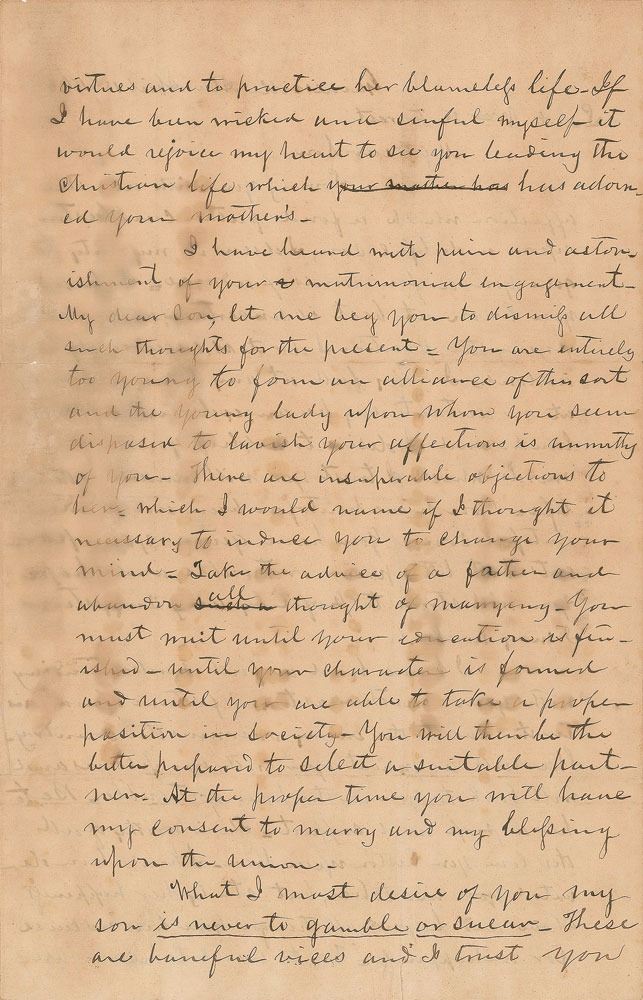 virtues and to practice her blameless life - If
I have been wicked and sinful myself it
would rejoice my heart to see you leading the
Christian life which your mother has has adorn-
ed your mother's -
I have heard with pain and aston-
ishment of your matrimonial engagement -
My dear Son, let me beg you to dismiss all
such thoughts for the present = You are entirely
too young to form an alliance of this sort
and the young lady upon whom you seem
disposed to lavish your affections is unworthy
of you - There are insuperable objections to
her = which I would name if I thought it
necessary to induce you to change your
mind = Take the advice of a father and
abandon such a all thought of marrying - You
must wait until your education is fin-
ished - until your character is formed
and until you are able to take a proper
position in Society - You will then be the
better prepared to select a suitable part-
ner - At the proper time you will have
my consent to marry and my blessing
upon the union -
What I most desire of you my
son is never to gamble or swear - These
are baneful vices and I trust you